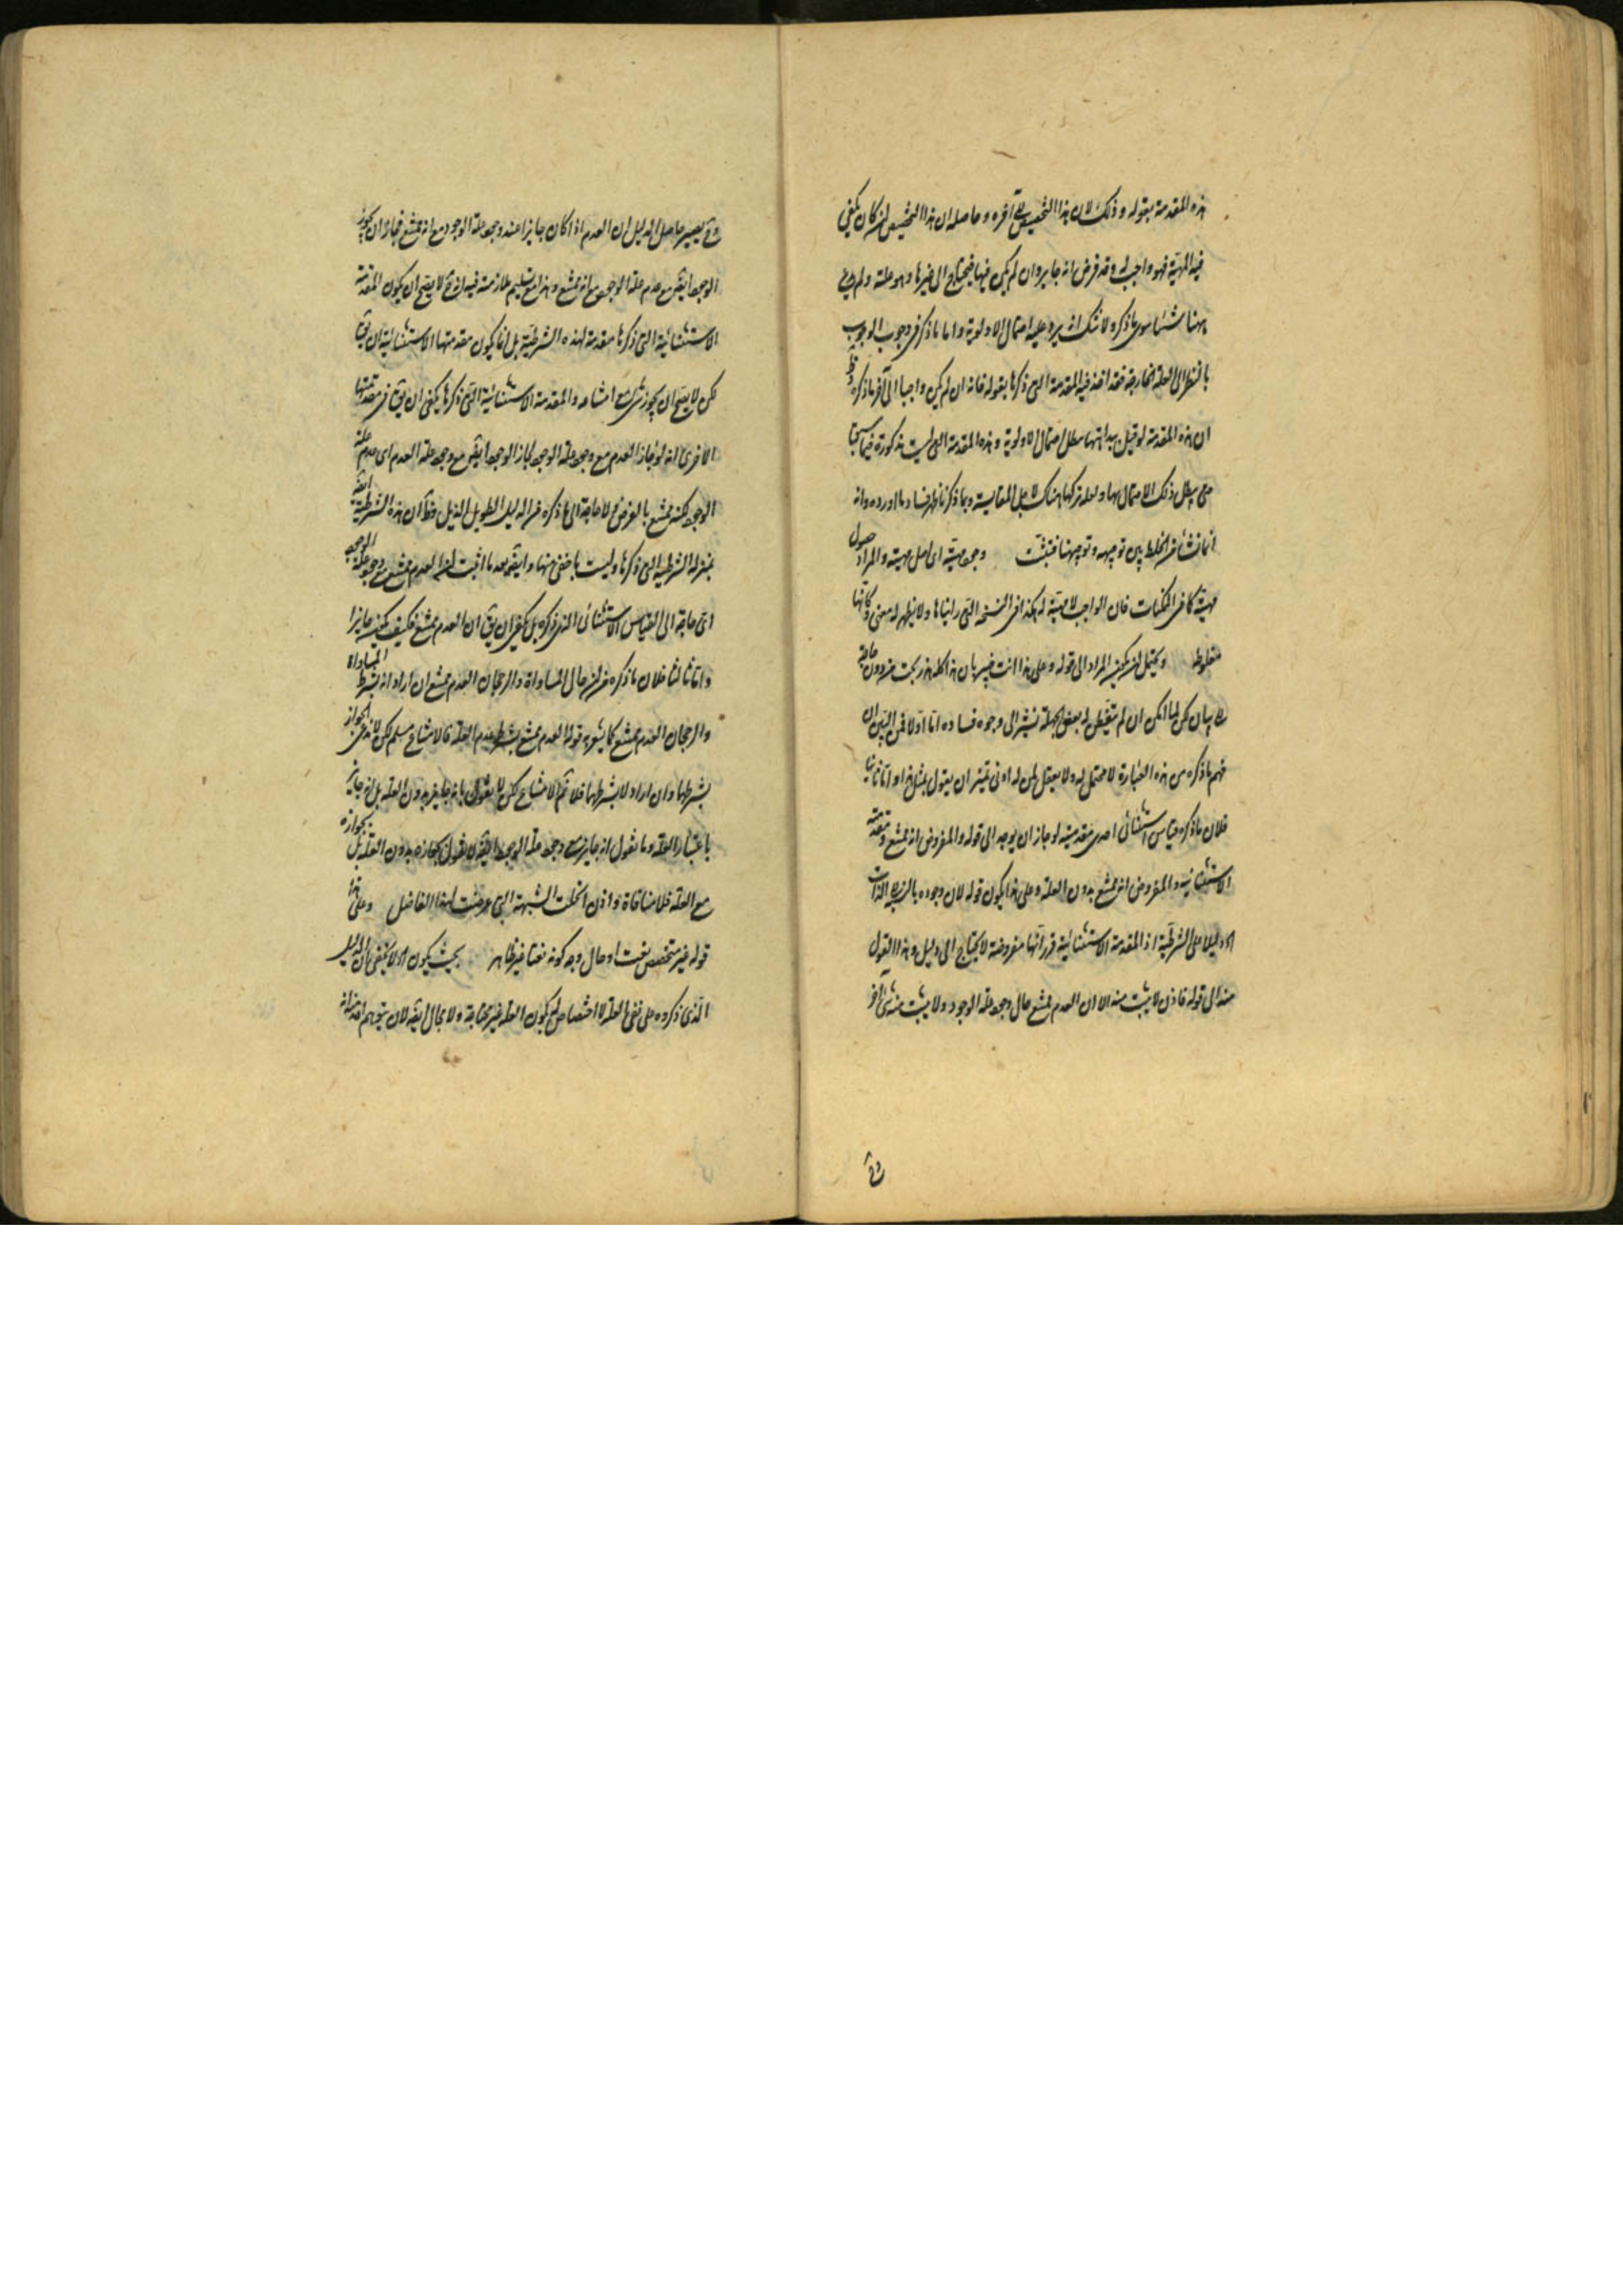 هذه المقدمة بقوله وذلك لان هذا التخصيص الى آخره وحاصله ان هذا التخصيص ان كان يكفى
فيه المهية فهو واجب له وقد فرض انه جايز وان لم يكن فيها فيحتاج الى غيرها وهو علته ولم
ههنا شيئا سوى ما ذكره ولا شك انه يرد عليه احتمال الاولوية واما ما ذكر فى وجوب الوجوب
بالنظر الى العلة الخارجة فقد اخذ فيه المقدمة التى ذكرها بقوله فانه ان لم يكن واجبا الى آخر ما ذكره وظ
ان هذه المقدمة لو قيل ببداهتها بطل احتمال الاولوية وهذه المقدمة التى ليست مذكورة فيما سبق
حتى يبطل ذلك الاحتمال بها ولعله تركها هناك لاجل المقايسة وبما ذكرنا ظهر فساد ما اورده وانه
انما نشأ من الخلط بين توجيهه وتوجيهنا فتثبت وجود مهيته اى اصل مهيته والمراد حصول
مهيته كما فى الممكنات فان الواجب لا مهية له هكذا فى النسخة التى رايناها ولا يظهر له معنى وكانها
مغلوطة ويحتمل ان يكون المراد الى قوله وعلى هذا انت خبير بان هذا كله هذر بحت من دون حاجة
الى بيان لكن لما امكن ان لم يتفطن له بعض الجهلة نشير الى وجوه فساده اما اولا فمن البين ان
فهم ما ذكره من هذه العبارة لا محتمل له ولا يعقل لمن له ادنى تميز ان يقول بمثل هذا واما ثانيا
فلان ما ذكره قياس استثنائى احدى مقدمتيه لو جاز ان يوجد الى قوله والمفروض انه ممتنع ومقدمته
الاستثنائية والمفروض انه ممتنع بدون العلة وعلى هذا يكون قوله لان وجوده بالنظر الى الذات
اه دليلا على الشرطية اذ المقدمة الاستثنائية قرر انها مفروضة لا يحتاج الى دليل وهذا القول
منه الى قوله فاذن لا يثبت منه الا ان العدم ممتنع حال وجود علة الوجود ولا يثبت منه شئ آخر
وح
وح يصير حاصل الدليل ان العدم اذا كان جايزا عند وجود علة الوجود مع انه ممتنع فجاز ان يجوز
الوجود ايضا مع عدم علة الوجود مع انه ممتنع وهذا مع تسليم ملازمته فيه ان ح لا يصح ان يكون المقدمة
الاستثنائية التى ذكرها مقدمة لهذه الشرطية بل انما يكون مقدمتها الاستثنائية ان يق
لكن لا يصح ان يجوز شئ مع امتناعه والمقدمة الاستثنائية التى ذكرها يكفى ان يق فى مقدمتها
الاخرى انه لو جاز العدم مع وجود علة الوجود لجاز الوجود ايضا مع وجود علة العدم اى عدم علة
الوجود لكنه ممتنع بالفرض ولا حاجة الى ما ذكره من الدليل الطويل الذيل وظ ان هذه الشرطية ايضا
بمنزلة الشرطية التى ذكرها وليست باخفى منها وايضا بعد ما اثبت ان العدم ممتنع مع وجود علة الوجود
اى حاجة الى القياس الاستثنائى الذى ذكره بل يكفى ان يق ان العدم ممتنع فكيف يكون جايزا
واما ثالثا فلان ما ذكره من ان حال المساواة والرجحان العدم ممتنع ان اراد انه بشرط المساواة
والرجحان العدم ممتنع كما يشعر به قوله العدم ممتنع بشرط عدم العلة فالامتناع مسلم لكن لا ندعى الجواز
بشرطها وان اراد لا بشرطها فلا ثم الامتناع لكن لا يقول بانه جايز بدون العلة بل انه جايز
باعتبار العلة وما نقول انه جايز مع وجود علة الوجود ايضا لا نقول بجوازه بدون العلة بل بجوازه
مع العلة فلا منافاة واذن انحلت الشبهة التى عرضت لهذا الفاضل وعلى هذا
قوله غير متخصص بنعت او حال وجه كونه نعتا غير ظاهر بحيث يكون اه لا يخفى ان الدليل
الذى ذكره على نفى العلة لاختصاص يكون العلة غير محتاجة ولا مجال ايضا لان يتوهم احد انه